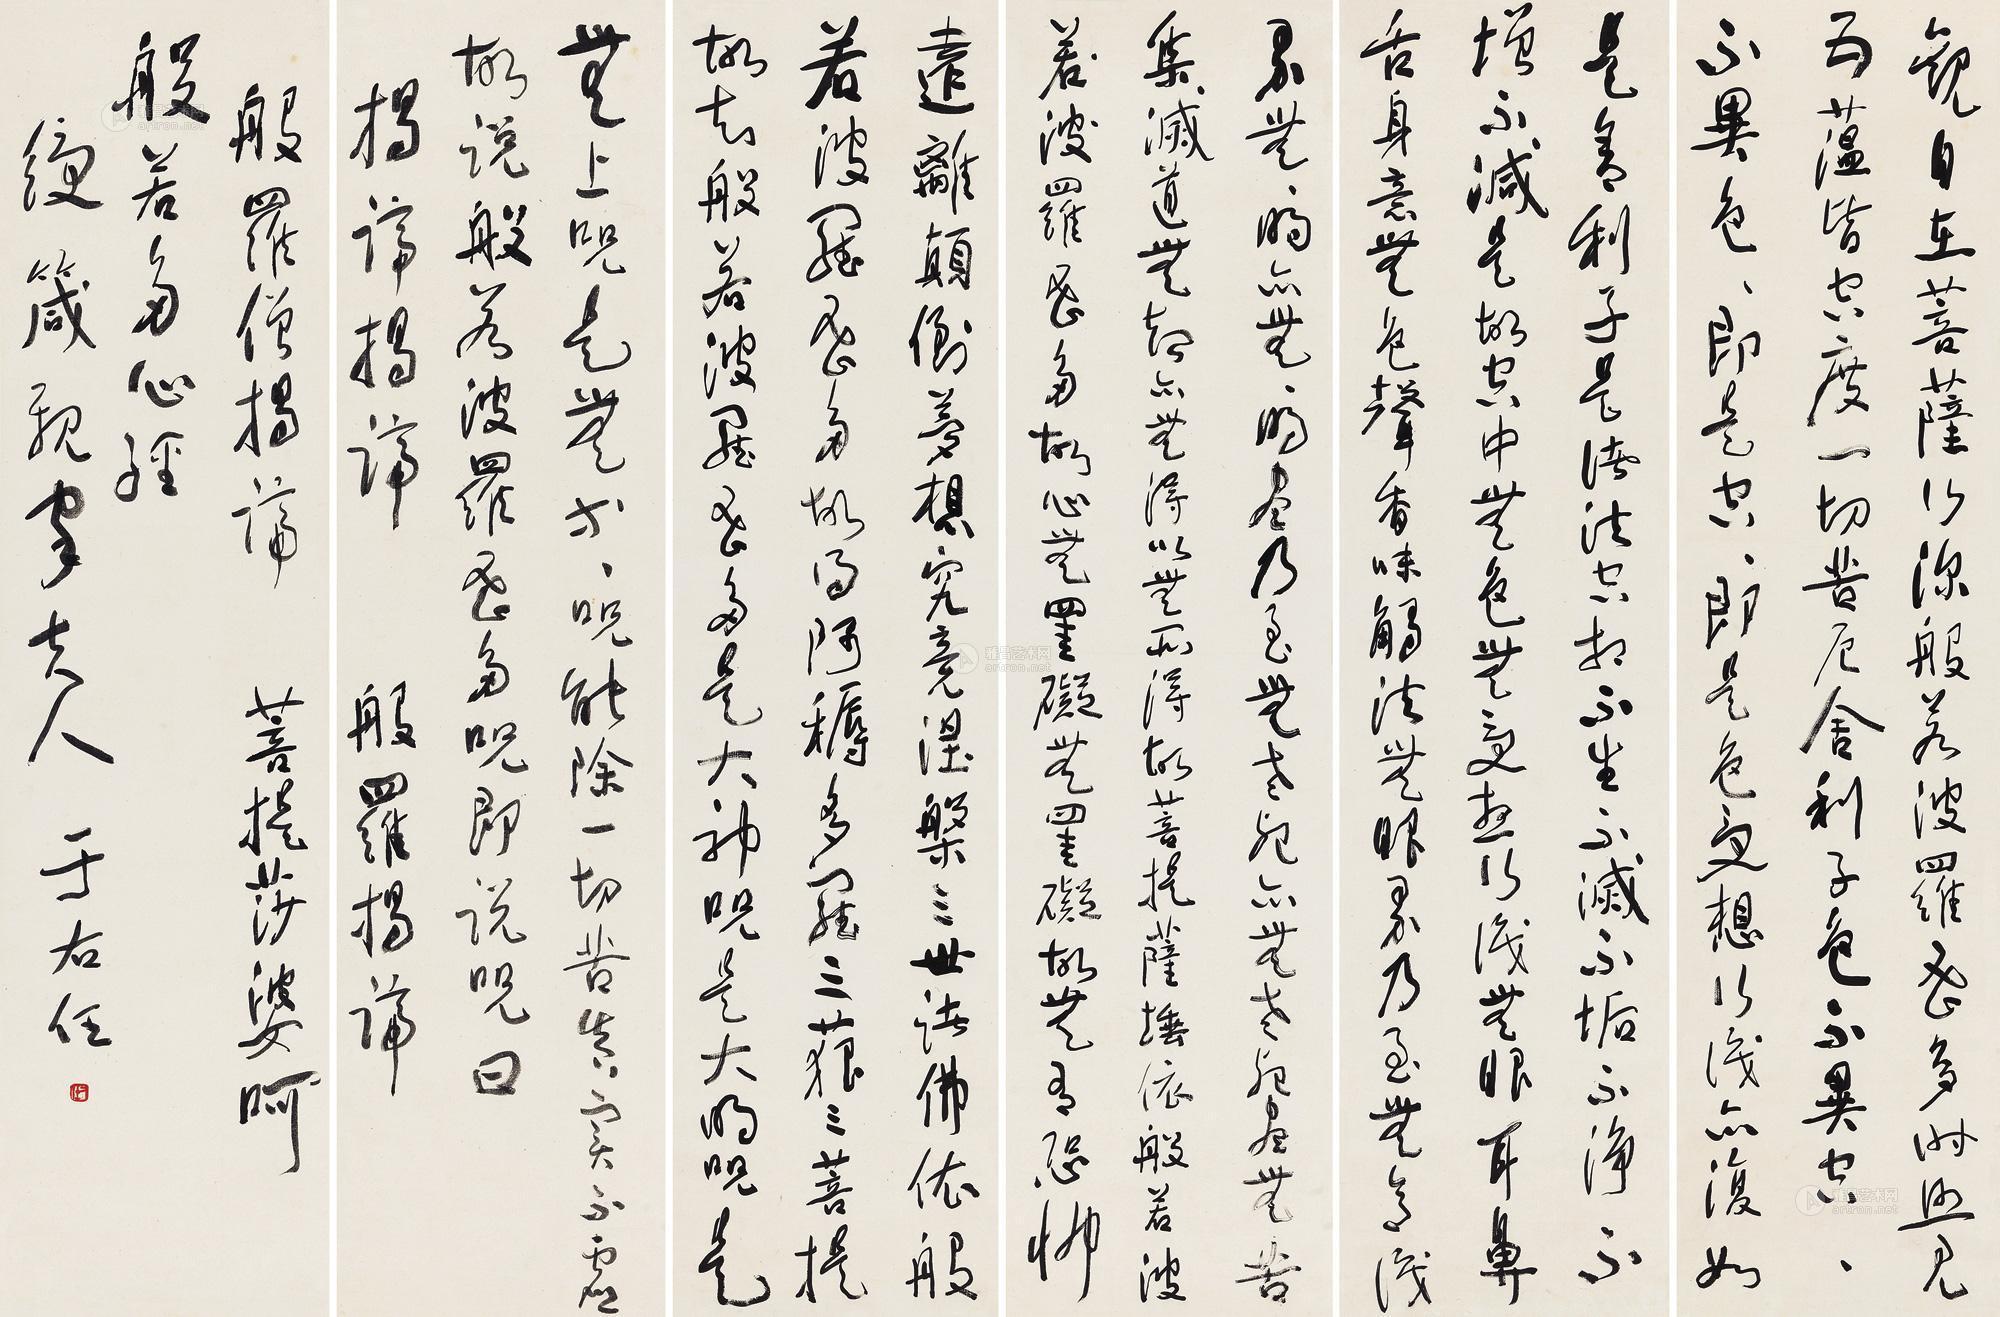 觀自在菩薩行深般若波羅蜜多時照見
五蘊皆空度一切苦厄舍利子色不異空、
不異色、即是空、即是色受想行識亦復如
是舍利子是諸法空相不生不滅不垢不淨不
增不減是故空中無色無受想行識無眼耳鼻
舌身意無色聲香味觸法無眼界乃至無意識
界無、明亦無、明盡乃至無老死亦無老死盡無苦
集滅道無智亦無得以無所得故菩提薩埵依般若波
若波羅蜜多故心無罣礙無罣礙故無有恐怖
遠離顛倒夢想究竟涅槃三世諸佛依般
若波羅蜜多故得阿耨多羅三藐三菩提
故知般若波羅蜜多是大神咒是大明咒是
無上咒是無等、咒能除一切苦真實不虛
故說般若波羅蜜多咒即說咒曰
揭諦揭諦 般羅揭諦
般羅僧揭諦 菩提莎婆呵
般若多心經
緩箴親家夫人 于右任
雅昌艺术网
artron.net